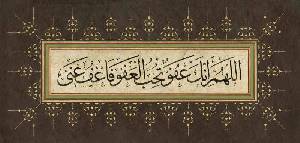 اللهم انك عفو تحب العفو فاعف عنى